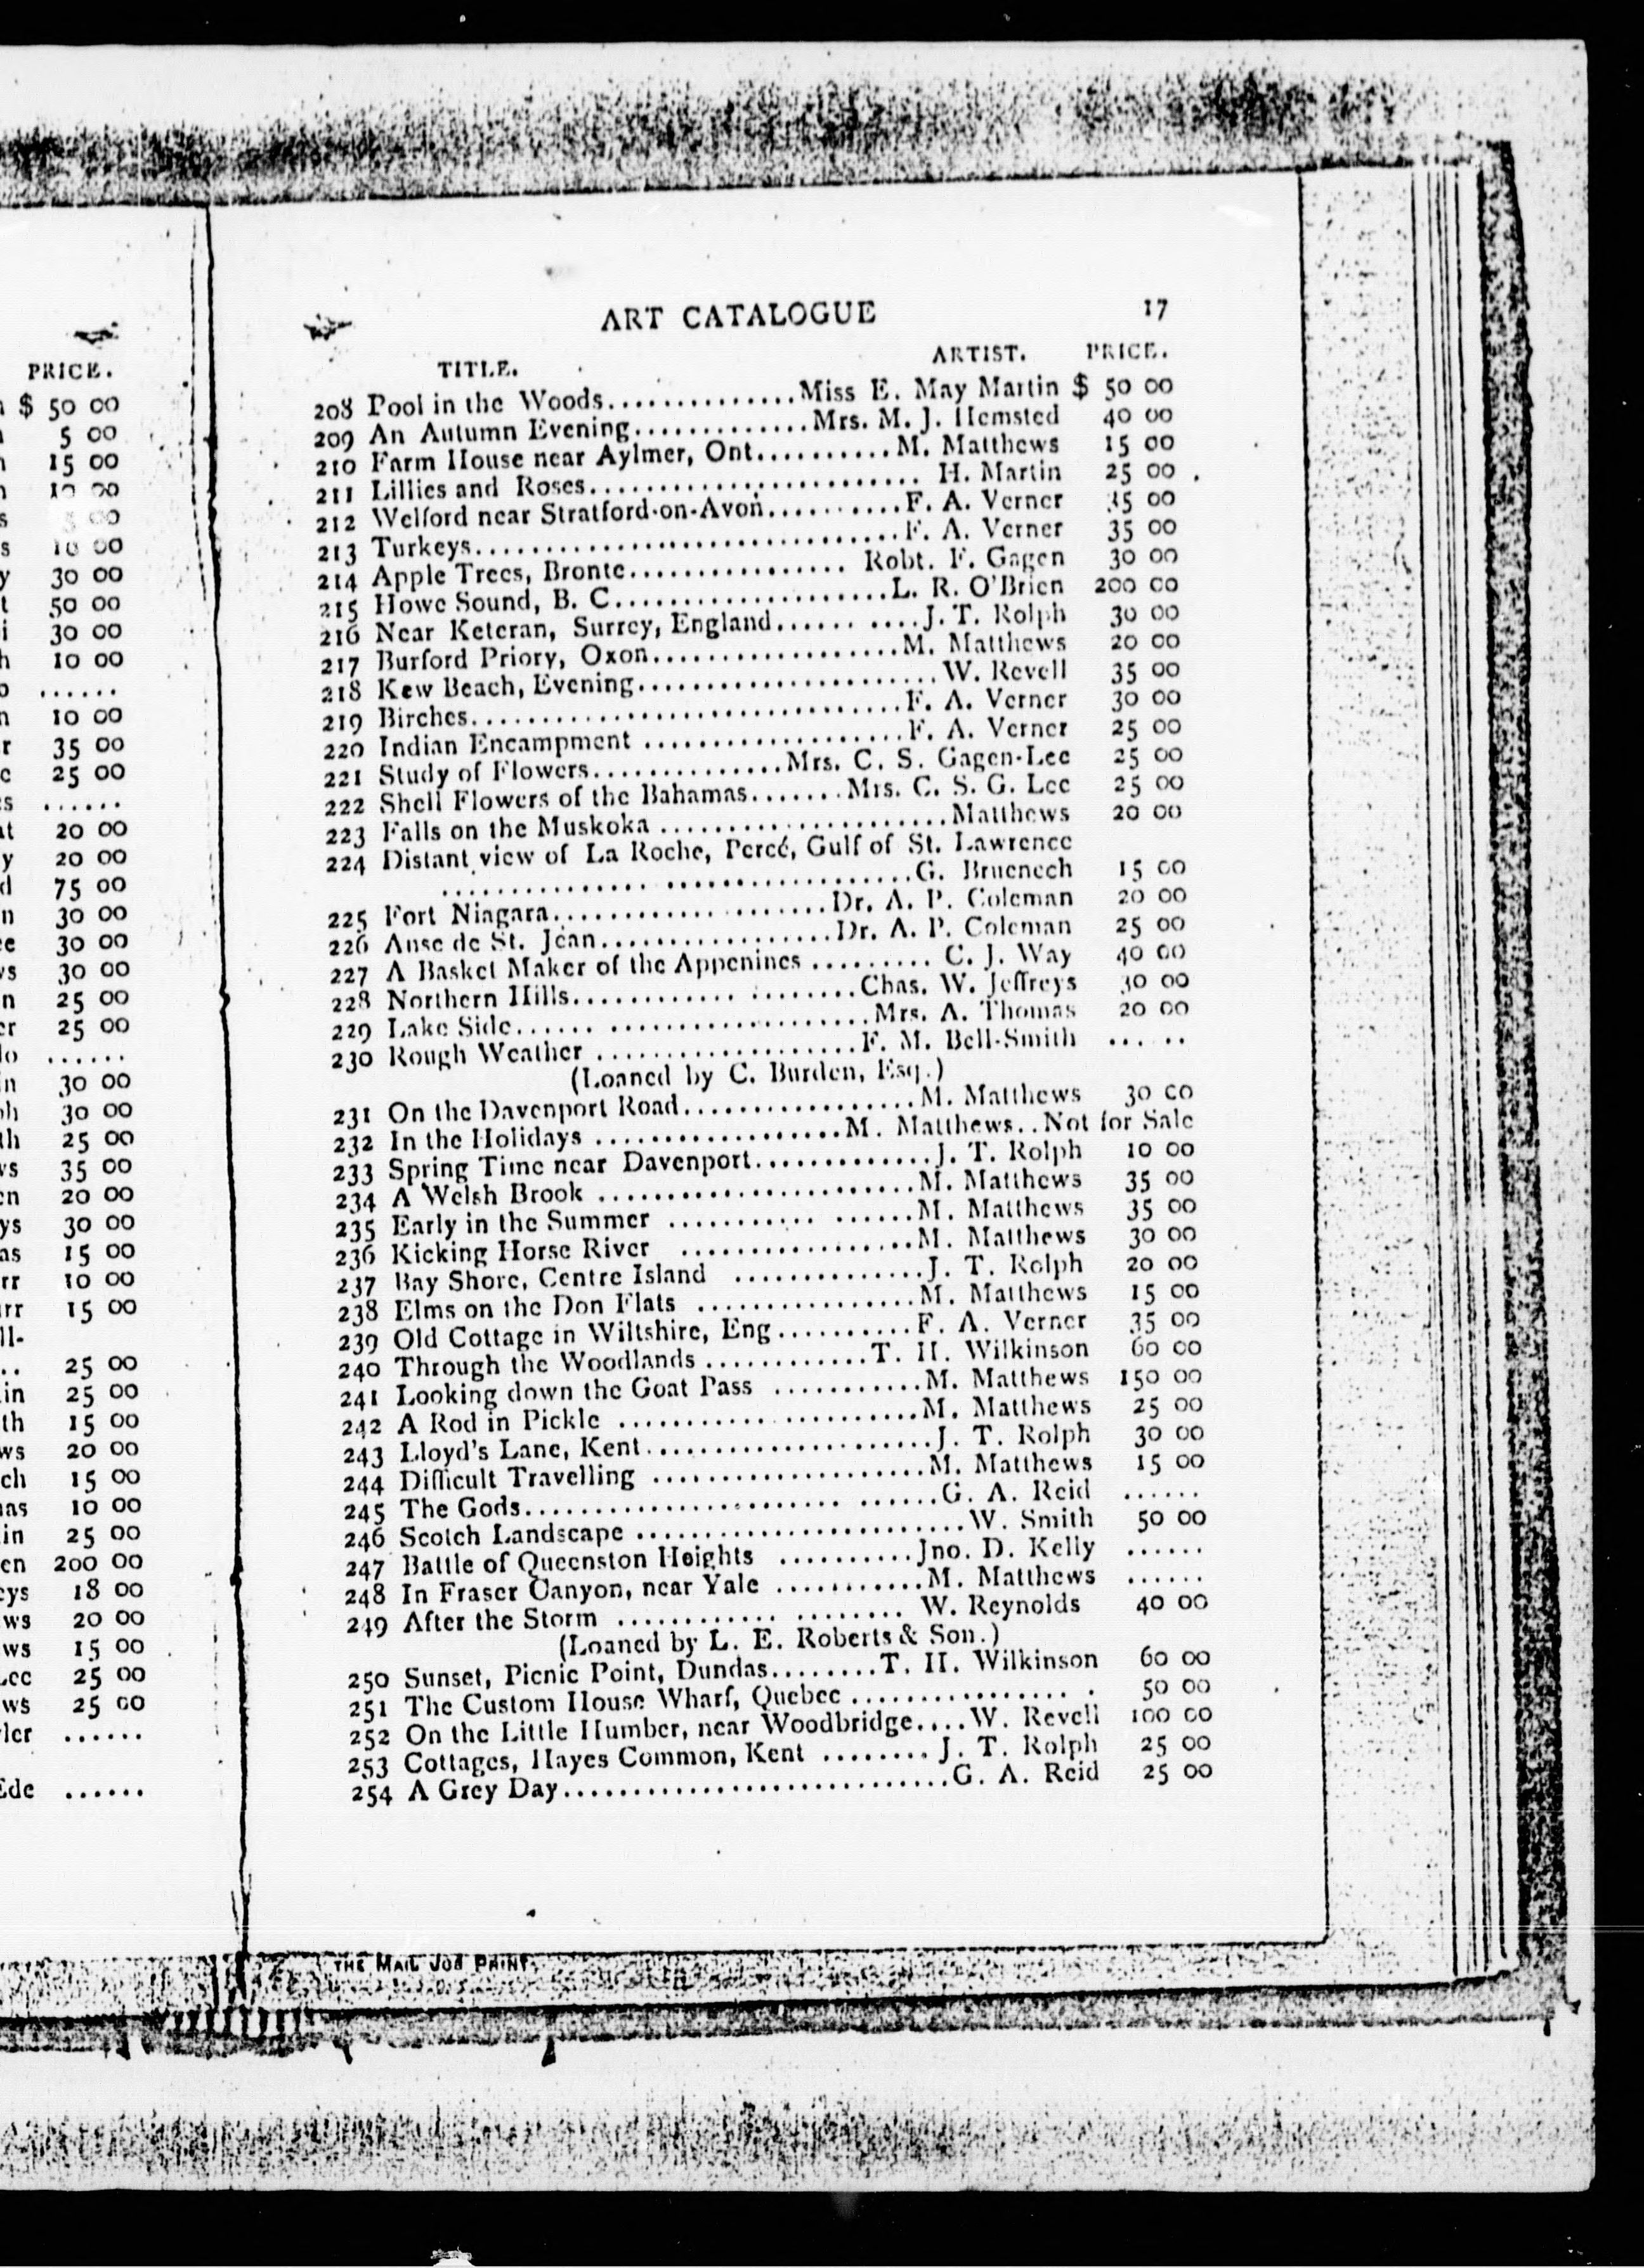 PRICE.
$ 50 00
5 00
15 00
10 00
5 00
10 00
30 00
50 00
30 00
10 00
......
10 00
35 00
25 00
......
20 00
20 00
75 00
30 00
30 00
30 00
25 00
25 00
......
30 00
30 00
25 00
35 00
20 00
30 00
15 00
10 00
15 00
25 00
25 00
15 00
20 00
15 00
10 00
25 00
200 00
18 00
20 00
15 00
25 00
25 00
......
......
ART CATALOGUE 17
TITLE. ARTIST. PRICE.
208 Pool in the Woods..............Miss E. May Martin $ 50 00
209 An Autumn Evening.............Mrs. M. J. Hemsted 40 00
210 Farm House near Aylmer, Ont..........M. Matthews 15 00
211 Lillies and Roses........................ H. Martin 25 00
212 Welford near Stratford-on-Avon..........F. A. Verner 35 00
213 Turkeys...............................F. A. Verner 35 00
214 Apple Trees, Bronte................ Robt. F. Gagen 30 00
215 Howe Sound, B. C....................L. R. O'Brien 200 00
216 Near Keteran, Surrey, England...... ....J. T. Rolph 30 00
217 Burford Priory, Oxon..................M. Matthews 20 00
218 Kew Beach, Evening......................W. Revell 35 00
219 Birches................................F. A. Verner 30 00
220 Indian Encampment ...................F. A. Verner 25 00
221 Study of Flowers..............Mrs. C. S. Gagen-Lee 25 00
222 Shell Flowers of the Bahamas.......Mrs. C. S. G. Lee 25 00
223 Falls on the Muskoka .....................Matthews 20 00
224 Distant view of La Roche, Percé, Gulf of St. Lawrence
..................................G. Bruenech 15 00
225 Fort Niagara....................Dr. A. P. Coleman 20 00
226 Anse de St. Jean.................Dr. A. P. Coleman 25 00
227 A Basket Maker of the Appenines ......... C. J. Way 40 00
228 Northern Hills............ ........Chas. W. Jeffreys 30 00
229 Lake Side...... ...................Mrs. A. Thomas 20 00
230 Rough Weather ...................F. M. Bell-Smith ......
(Loaned by C. Burden, Esq.)
231 On the Davenport Road.................M. Matthews 30 00
232 In the Holidays ..................M. Matthews..Not for Sale
233 Spring Time near Davenport.............J. T. Rolph 10 00
234 A Welsh Brook .......................M. Matthews 35 00
235 Early in the Summer ........... ......M. Matthews 35 00
236 Kicking Horse River .................M. Matthews 30 00
237 Bay Shore, Centre Island ..............J. T. Rolph 20 00
238 Elms on the Don Flats ................M. Matthews 15 00
239 Old Cottage in Wiltshire, Eng..........F. A. Verner 35 00
240 Through the Woodlands ............T. H. Wilkinson 60 00
241 Looking down the Goat Pass ...........M. Matthews 150 00
242 A Rod in Pickle ......................M. Matthews 25 00
243 Lloyd's Lane, Kent.....................J. T. Rolph 30 00
244 Difficult Travelling ....................M. Matthews 15 00
245 The Gods....................... ......G. A. Reid ......
246 Scotch Landscape ........................W. Smith 50 00
247 Battle of Queenston Heights ..........Jno. D. Kelly ......
248 In Fraser Canyon, near Yale ...........M. Matthews ......
249 After the Storm ............ ........ W. Reynolds 40 00
(Loaned by L. E. Roberts & Son.)
250 Sunset, Picnic Point, Dundas........T. H. Wilkinson 60 00
251 The Custom House Wharf, Quebec ................ . 50 00
252 On the Little Humber, near Woodbridge....W. Revell 100 00
253 Cottages, Hayes Common, Kent ........ J. T. Rolph 25 00
254 A Grey Day............................G. A. Reid 25 00
THE MAIL JOB PRINT.